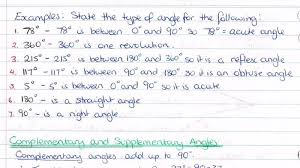 Examples: State the type of angle for the following:
1. 78° - 78° is between 0° and 90° so 78° - acute angle
2. 360° - 360° is one revolution.
3. 215° - 215° is between 180° and 360° so it is a reflex angle
4. 117° - 117° is between 90° and 180° so it is an obtuse angle
5. 5° - 5° is between 0° and 90° so it is acute
6. 180° - is a straight angle
7. 90° - is a right angle
Complementary and Supplementary Angles
Complementary angles add up to 90°